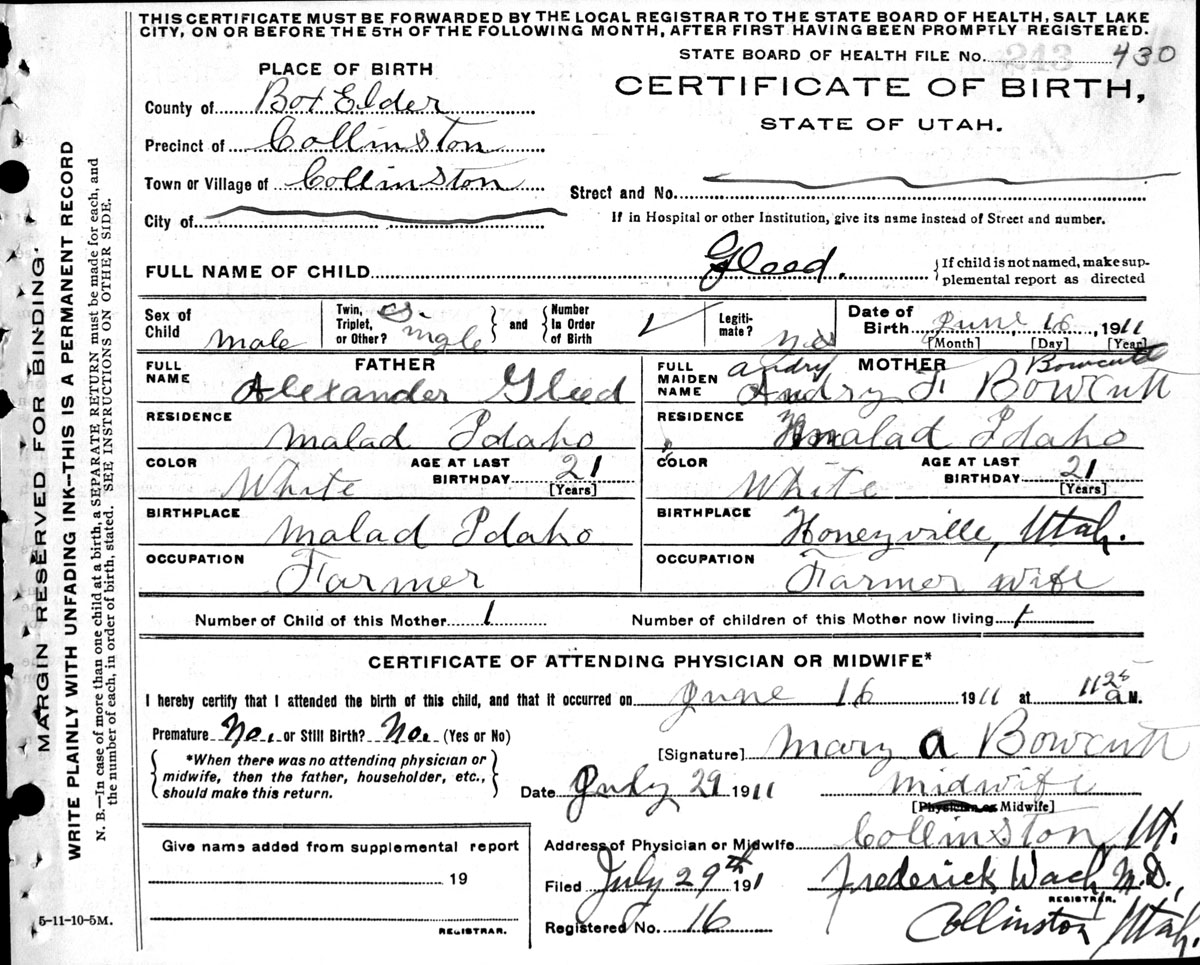 THIS CERTIFICATE MUST BE FORWARDED BY THE LOCAL REGISTRAR TO THE STATE BOARD OF HEALTH, SALT LAKE
CITY, ON OR BEFORE THE 5TH OF THE FOLLOWING MONTH, AFTER FIRST HAVING BEEN PROMPTLY REGISTERED.
STATE BOARD OF HEALTH FILE No. 213 430
PLACE OF BIRTH
CERTIFICATE OF BIRTH,
STATE OF UTAH.
County of Box Elder
Precinct of Collinston
Town or Village of Collinston
Street and No.
City of
If in Hospital or other Institution, give its name instead of Street and number.
FULL NAME OF CHILD Gleed.
{If child is not named, make sup-
plemental report as directed
Sex of Child Male
Twin, Triplet, or Other? Single
and
Number In Order of Birth 1
Legiti-mate? Yes
Date of Birth June 16, 1911
[Month] [Day] [Year]
FATHER
FULL NAME Alexander Gleed
RESIDENCE Malad Idaho
COLOR White
AGE AT LAST BIRTHDAY 21
[Years]
BIRTHPLACE Malad Idaho
OCCUPATION Farmer
MOTHER
Andry Bowcutt
FULL MAIDEN NAME Andry F. Bowcutt
RESIDENCE Malad Idaho
COLOR White
AGE AT LAST BIRTHDAY 21
[Years]
BIRTHPLACE Honeyville, Utah.
OCCUPATION Farmer wife
Number of Child of this Mother 1
Number of children of this Mother now living 1
CERTIFICATE OF ATTENDING PHYSICIAN OR MIDWIFE*
I hereby certify that I attended the birth of this child, and that it occurred on June 16 1911 at 11 25 a M.
Premature No. or Still Birth? No. (Yes or No)
[Signature] Mary A Bowcutt
*When there was no attending physician or
midwife, then the father, householder, etc.,
should make this return.
Date July 29 1911
Midwife
[Physician or Midwife]
Address of Physician or Midwife Collinston, Ut.
Give name added from supplemental report
19
REGISTRAR.
Filed July 29th 1911
Frederick Wach, M.D.,
REGISTRAR.
Registered No. 16
Collinston, Utah.
5-11-10-5M.
MARGIN RESERVED FOR BINDING.
WRITE PLAINLY WITH UNFADING INK—THIS IS A PERMANENT RECORD
N. B.—In case of more than one child at a birth, a SEPARATE RETURN must be made for each, and
the number of each, in order of birth, stated. SEE INSTRUCTIONS ON OTHER SIDE.